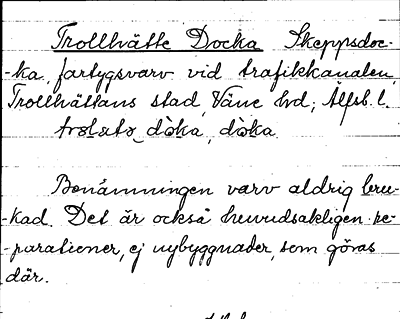 Trollhätte Docka Skeppsdoc-
-ka, fartygsvarv vid trafikkanalen,
Trollhättans stad, Väne hd; Älfsb. l.
trolato dòka, dòka.
Benämningen varv aldrig bru-
-kad. Det är också huvudsakligen re-
-parationer, ej nybyggnader, som göras
där.